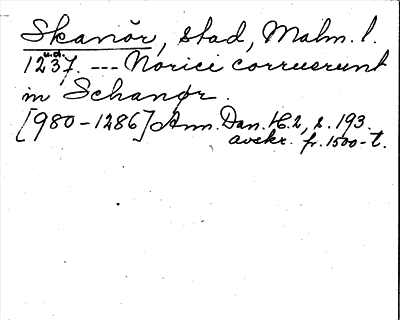 Skanör, stad, Malm. l.
u.d.
1237. --- Norice corruerunt
in Schanør.
[980-1286] Ann. Dan. H. 2, s. 193.
avskr. fr. 1500-t.